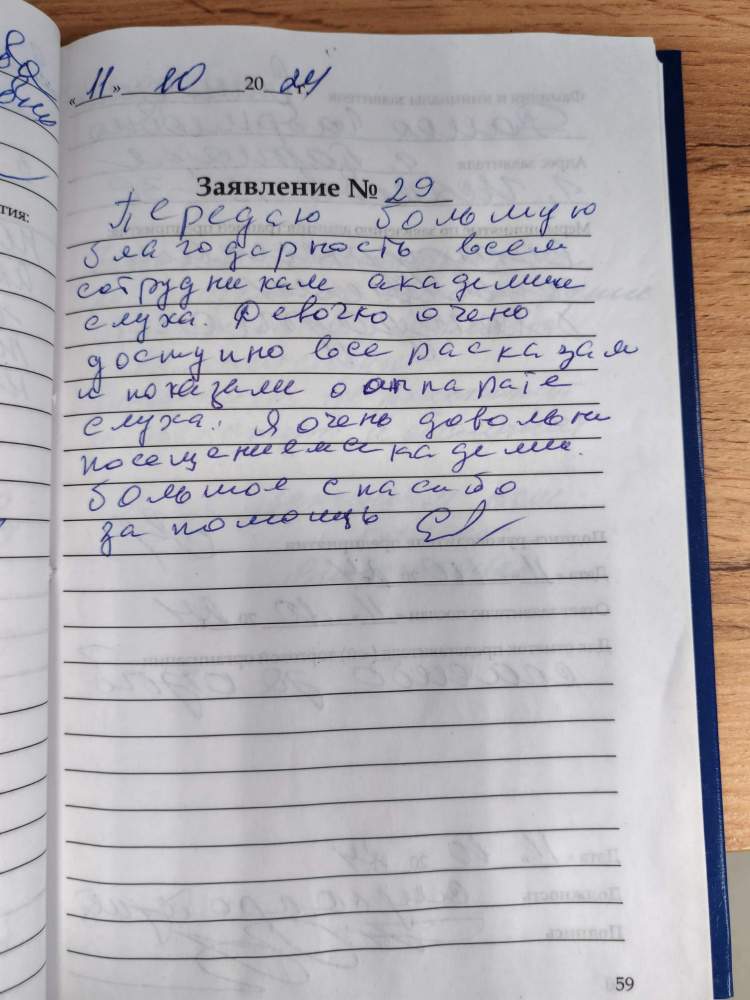 «11» 10 20 24
Заявление № 29
Передаю большую
благодарность всем
сотрудникам академии
слуха. Девочко очено
доступно все расказал
и показали о аппарате
слуха. Я очень довольни
посещениемакадемии.
большое спасибо
за помощь
тия:
59